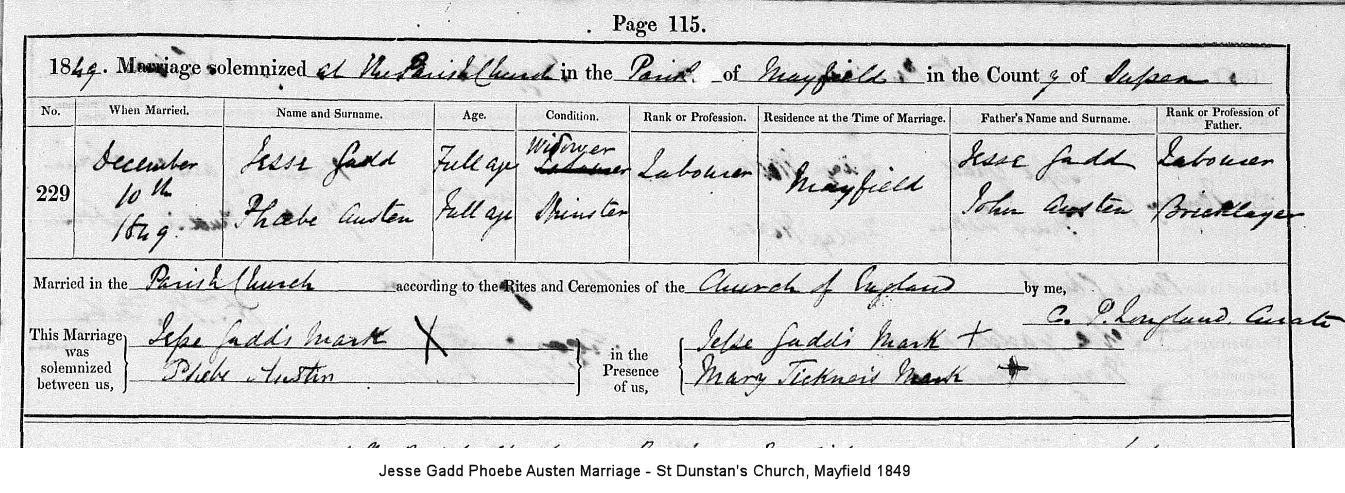 Page 115.
1849. Marriage solemnized at the Parish Church in the Parish of Mayfield in the County of Sussex
No. When Married. Name and Surname. Age. Condition. Rank or Profession. Residence at the Time of Marriage. Father's Name and Surname. Rank or Profession of Father.
229 December 10th 1849 Jesse Gadd Full age Widower Labourer Mayfield Jesse Gadd Labourer
Phœbe Austen Full age Spinster John Austen Bricklayer
Married in the Parish Church according to the Rites and Ceremonies of the Church of England by me,
C. P. Longland. Curate
This Marriage was solemnized between us, Jesse Gadd's Mark X in the Presence of us, Jesse Gadd's Mark +
Phebe Austin Mary Tickner's Mark +
Jesse Gadd Phoebe Austen Marriage - St Dunstan's Church, Mayfield 1849